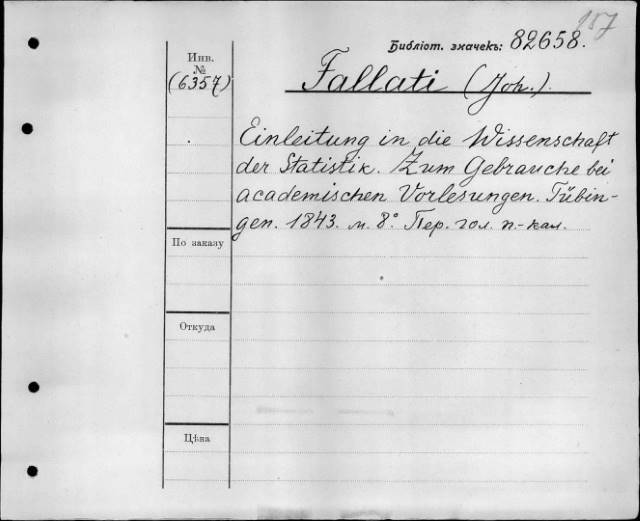 157
Библіот. значекъ: 82658.
Инв.
№
(6357)
Fallati (Joh.).
Einleitung in die Wissenschaft
der Statistik. Zum Gebrauche bei
academischen Vorlesungen. Tübin-
gen. 1843. м. 8° Пер. гол. п.-кал.
По заказу
Откуда
Цѣна